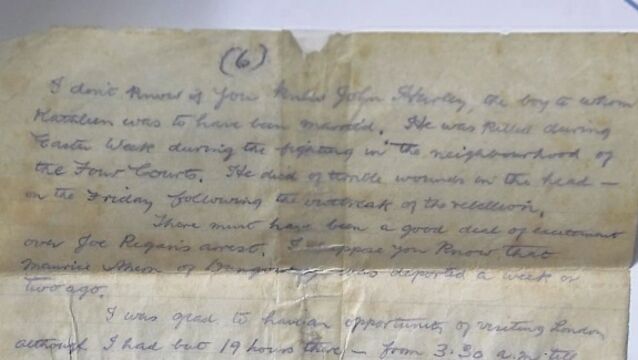 (6)
I don't know if you knew John Hurley, the boy to whom
Kathleen was to have been married. He was killed during
Easter Week during the fighting in the neighbourhood of
the Four Courts. He died of terrible wounds in the head —
on the Friday following the outbreak of the rebellion.
There must have been a good deal of excitement
over Joe Regan's arrest. I suppose you know that
Maurice of was deported a week or
two ago.
I was glad to have an opportunity of visiting London
although I had but 19 hours there — from 3.30 a.m. till